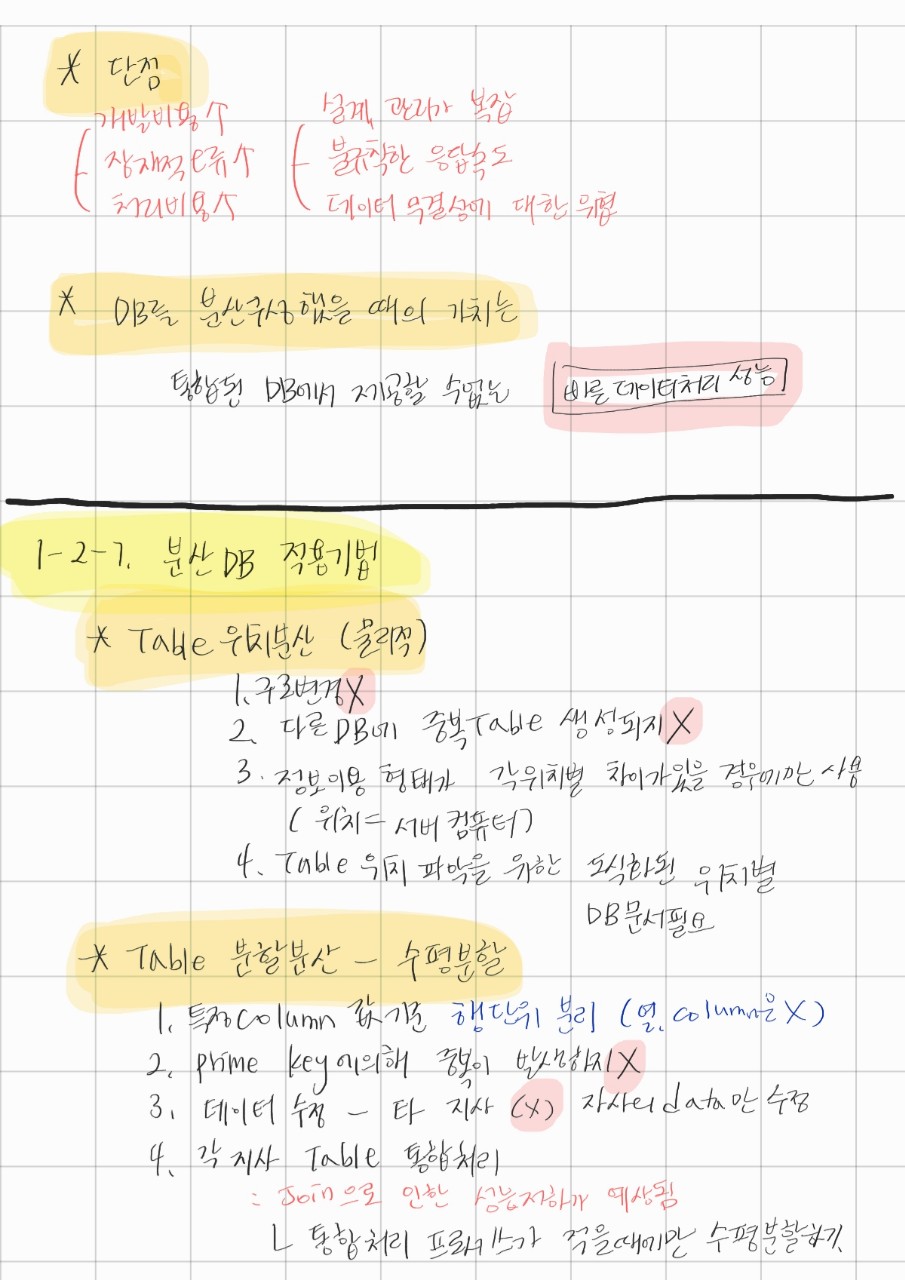 * 단점
개발비용↑
잠재적 오류↑
처리비용↑
설계, 관리가 복잡
불규칙한 응답속도
데이터 무결성에 대한 위협
* DB를 분산구성했을 때의 가치는
통합된 DB에서 제공할 수없는 빠른데이터처리 성능
1-2-7. 분산DB 적용기법
* Table 위치분산 (물리적)
1. 구조변경X
2. 다른DB에 중복Table 생성되지X
3. 정보이용 형태가 각위치별 차이가있을 경우에만 사용
( 위치= 서버컴퓨터)
4. Table 위치 파악을 위한 도식화된 위치별
DB문서필요
* Table 분할분산 - 수평분할
1. 특정column 값기준 행단위 분리 (열, column은 X)
2. prime key에의해 중복이 발생하지X
3. 데이터 수정 - 타 지사 (X) 자사의data만 수정
4. 각지사 Table 통합처리
: Join으로 인한 성능저하가 예상됨
ㄴ 통합처리 프로세스가 적을때에만 수평분할하기